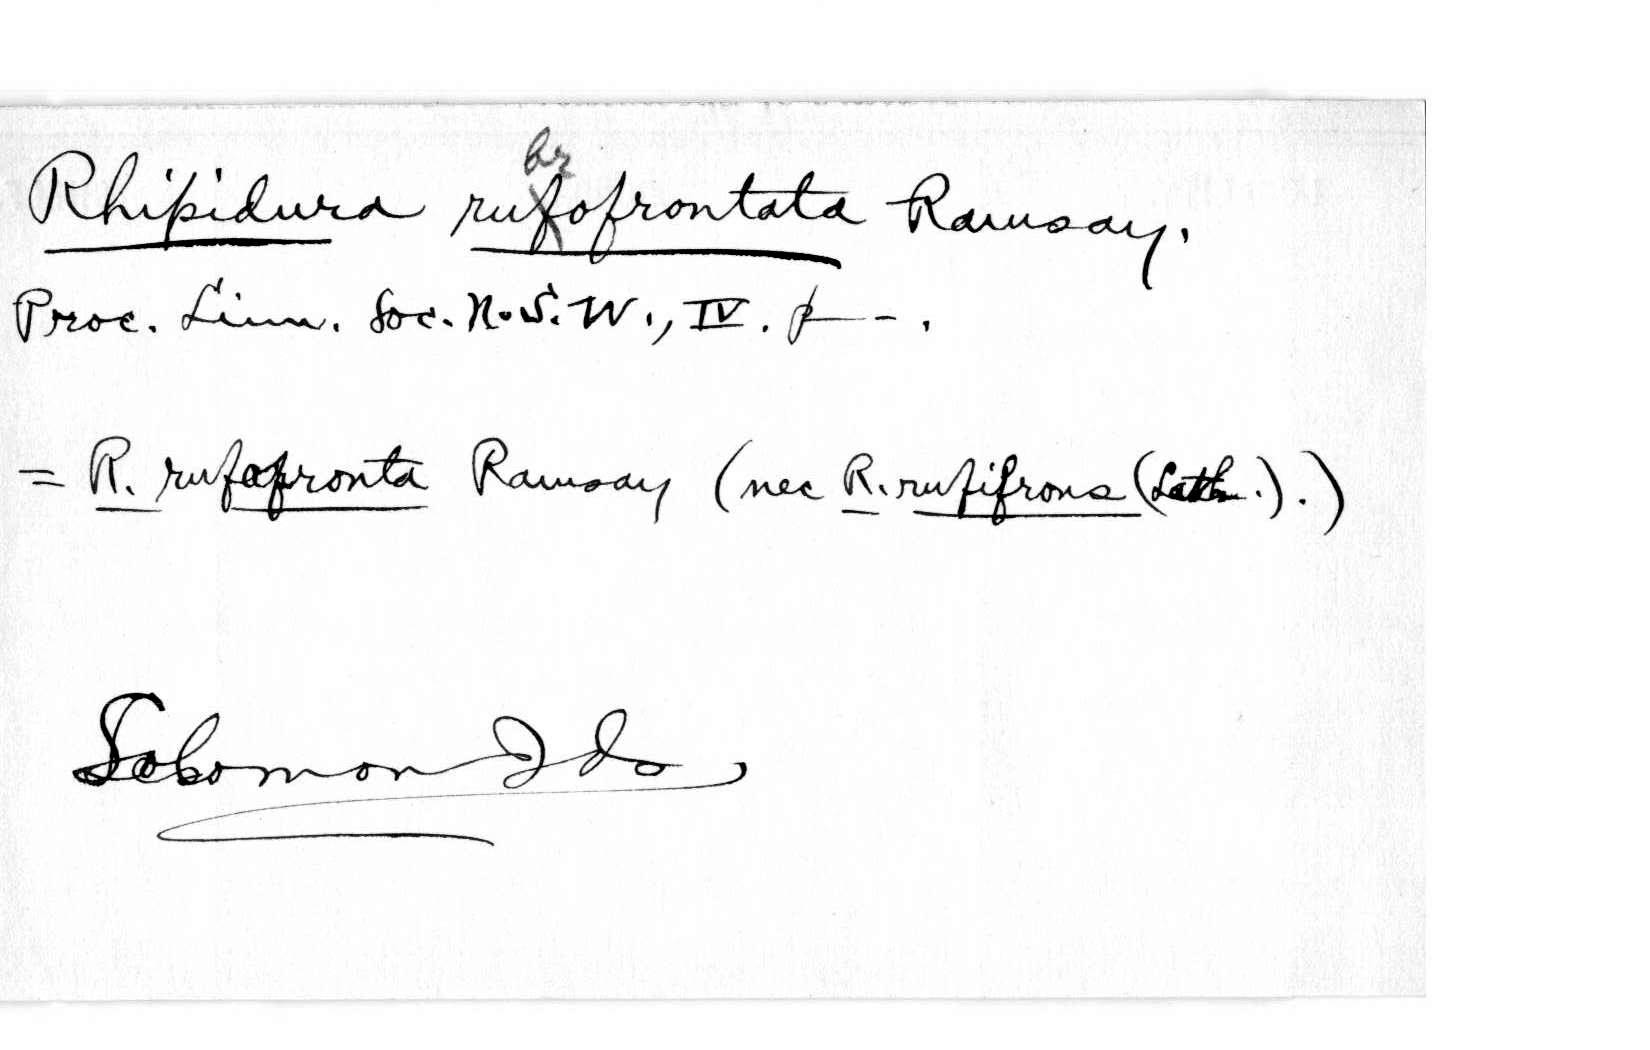 Rhipidura rubrofrontata Ramsay.
Proc. Linn. Soc. N.S.W., IV. p — - .
= R. rufofronta Ramsay (nec R. rufifrons (Lath.).)
Solomon Ids